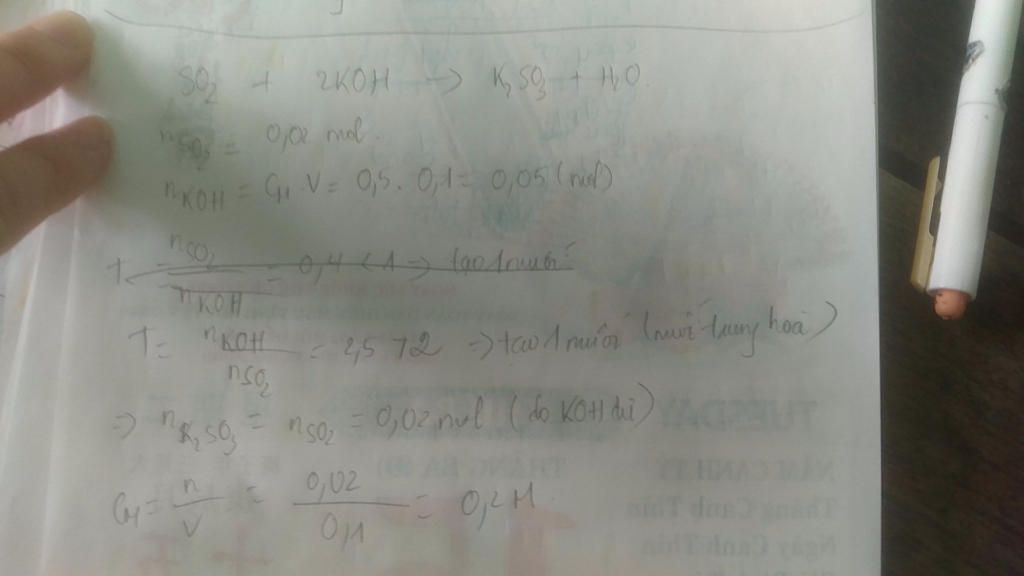 SO2 + 2KOH → K2SO3 + H2O.
nSO2 = 0,02 mol.
nKOH = CM.V = 0,5. 0,1 = 0,05 (mol)
T = nSO2 / nKOH = 0,4 < 1 → tạo 1 muối
T = nKOH / nSO2 = 2,5 > 2 => tạo 1 muối (muối trung hoà)
=> nK2SO3 = nSO2 = 0,02 mol (do KOH dư)
CM = n / V = 0,02 / 0,1 = 0,2M.
TUESDAY
THÁNG BA
NĂM CANH TÝ
Tháng Canh Thìn
Ngày Canh Thìn